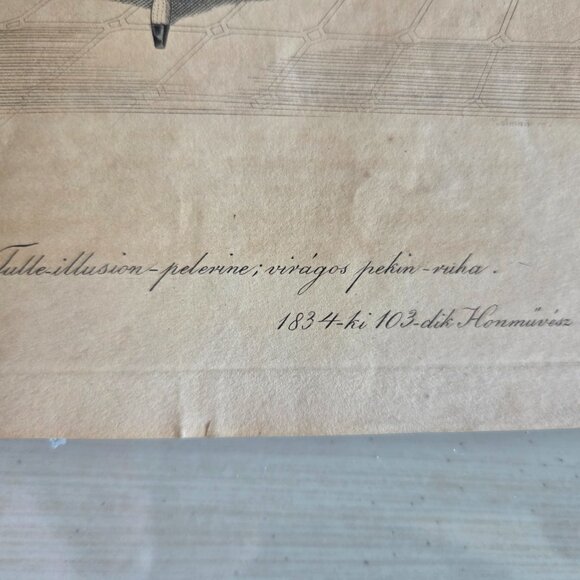 Tulle-illusion-pelerine; virágos pekin-ruha.
1834-ki 103-dik Honművész